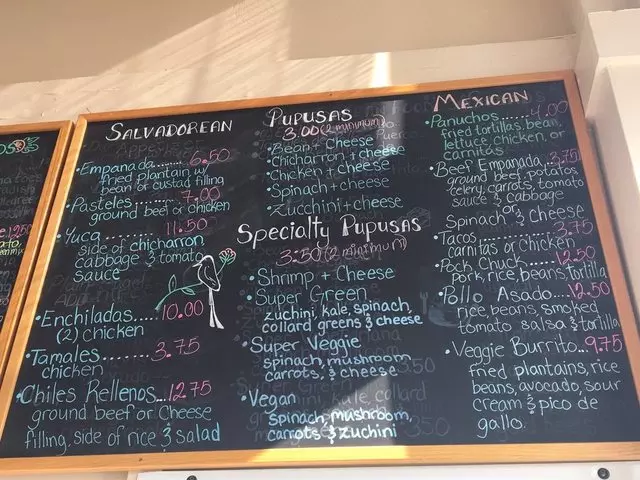 SALVADOREAN
Empanada....... 6.50
fried plantain w/
bean or custad filling
Pasteles....... 7.00
ground beef or chicken
Yuca........ 11.50
side of chicharron
cabbage & tomato
sauce
Enchiladas..... 10.00
(2) chicken
Tamales....... 3.75
chicken
Chiles Rellenos...12.75
ground beef or Cheese
filling, side of rice & salad
PUPUSAS
3.00 (2 minimum)
Bean + Cheese
Chicharron + cheese
Chicken + Cheese
Spinach + cheese
Zucchini + cheese
Specialty Pupusas
3.50 (2 minimum)
Shrimp + Cheese
Super Green
zuchini, kale, spinach,
collard greens & cheese
Super Veggie
spinach, mushroom
carrots, & cheese
Vegan
spinach, mushroom,
carrots & zuchini
MEXICAN
Panuchos......4.00
fried tortillas, bean,
lettuce, chicken, or
carnitas
Beef Empanada...3.75
ground beef, potatos
celery, carrots, tomato
sauce & cabbage
or
Spinach & cheese
Tacos........ 3.75
carnitas or chicken
Pock Chuck....12.50
pork, rice, beans tortilla
Pollo Asado....12.50
rice, beans, smoked
tomato salsa & tortilla
Veggie Burrito...9.75
fried plantains, rice
beans, avocado, sour
cream & pico de
gallo